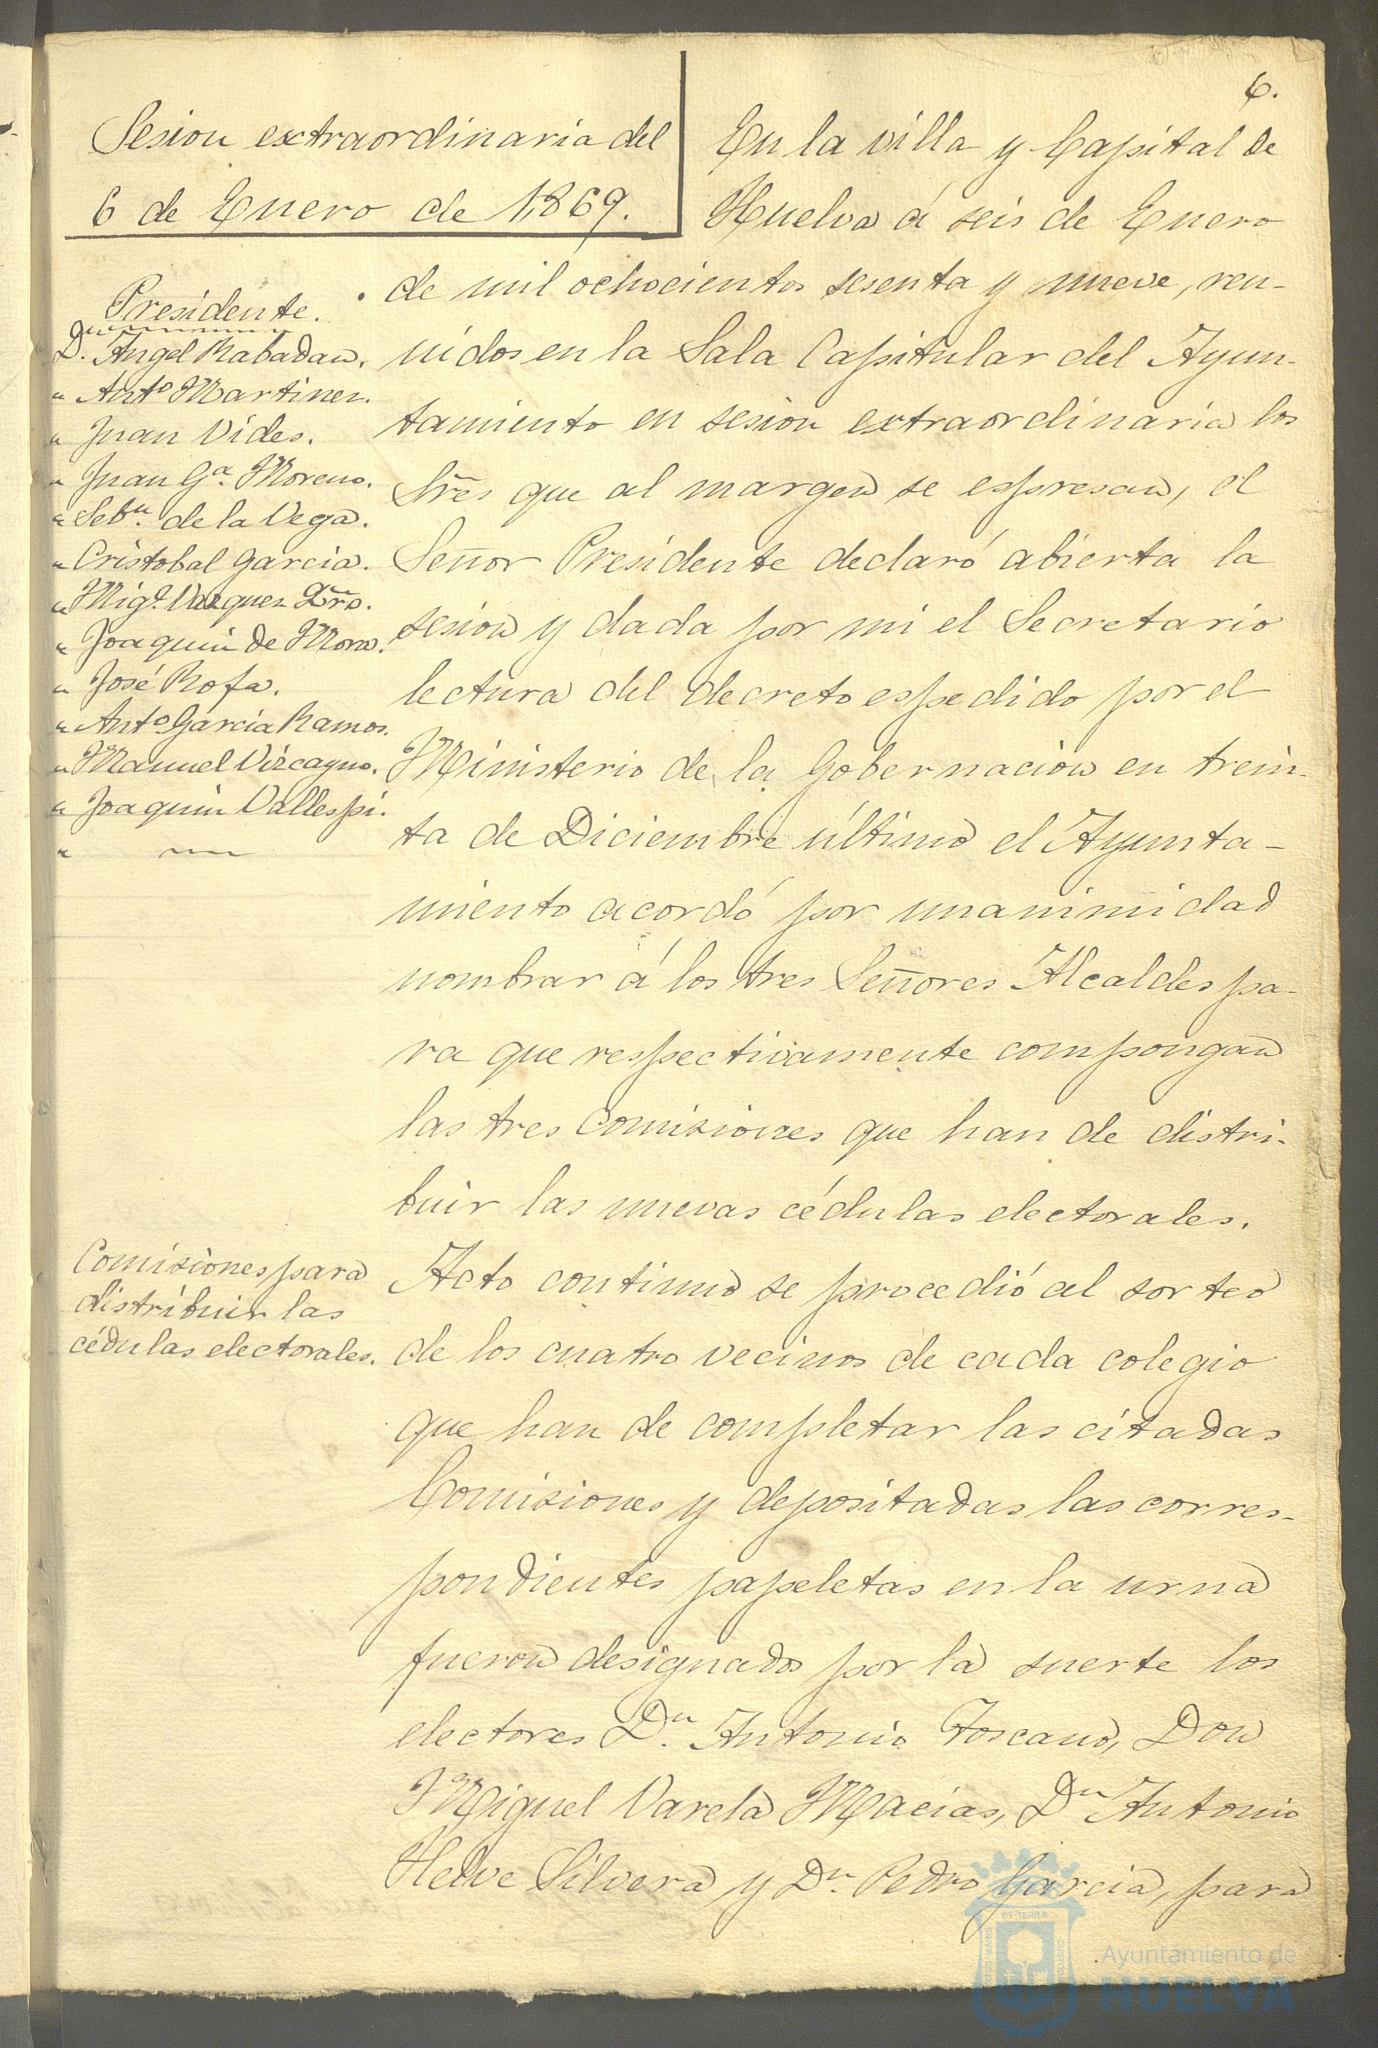 6.
Sesion extraordinaria del
6 de Enero de 1869.
Presidente.
D. Angel Rabadan.
" Antº Martinez.
" Juan Vides.
" Juan Gª. Moreno.
" Sebn. de la Vega.
" Cristobal Garcia.
" Migl. Vazquez
" Joaquin de Mora.
" José Rofa.
" Antº Garcia Ramos.
" Manuel Vizcayno.
" Joaquin Vallespi.
"
En la villa y Capital de
Huelva á seis de Enero
de mil ochocientos sesenta y nueve, reu-
nidos en la Sala Capitular del Ayun-
tamiento en sesion extraordinaria los
Sres que al margen se espresan, el
Señor Presidente declaró abierta la
sesion y dada por mi el Secretario
lectura del decreto espedido por el
Ministerio de la Gobernacion en trein-
ta de Diciembre último el Ayunta-
miento acordó por unanimidad
nombrar á los tres Señores Alcaldes pa-
ra que respectivamente compongan
las tres Comisiones que han de distri-
buir las nuevas cédulas electorales.
Comisiones para
distribuir las
cédulas electorales.
Acto continuo se procedió al sorteo
de los cuatro vecinos de cada colegio
que han de completar las citadas
Comisiones y depositadas las corres-
pondientes papeletas en la urna
fueron designados por la suerte los
electores Dn. Antonio Toscano, Don
Miguel Varela Macias, Dn Antonio
Helve Silvera y Dn. Pedro Garcia, para
Ayuntamiento de
HUELVA